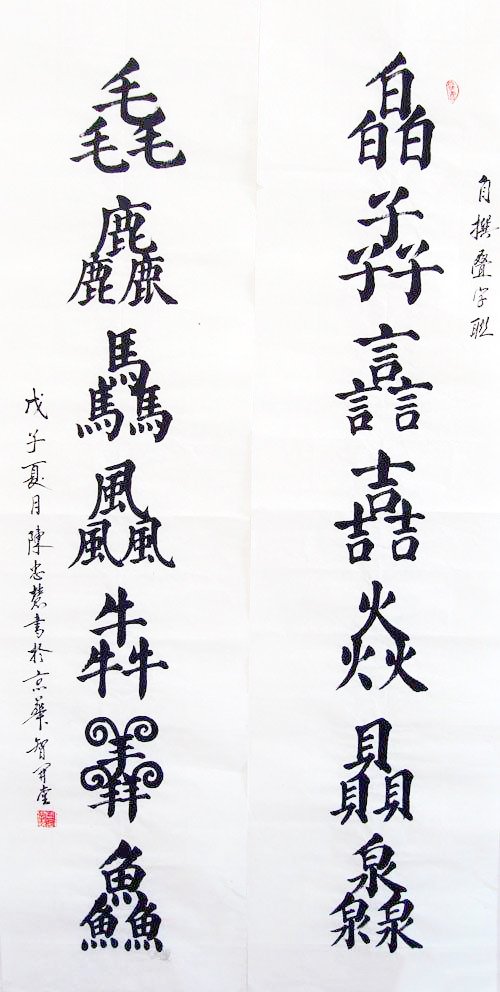 自撰叠字联
皛孨譶嚞焱贔灥
毳麤驫飍犇羴鱻
戊子夏月陳忠書於京華智堂